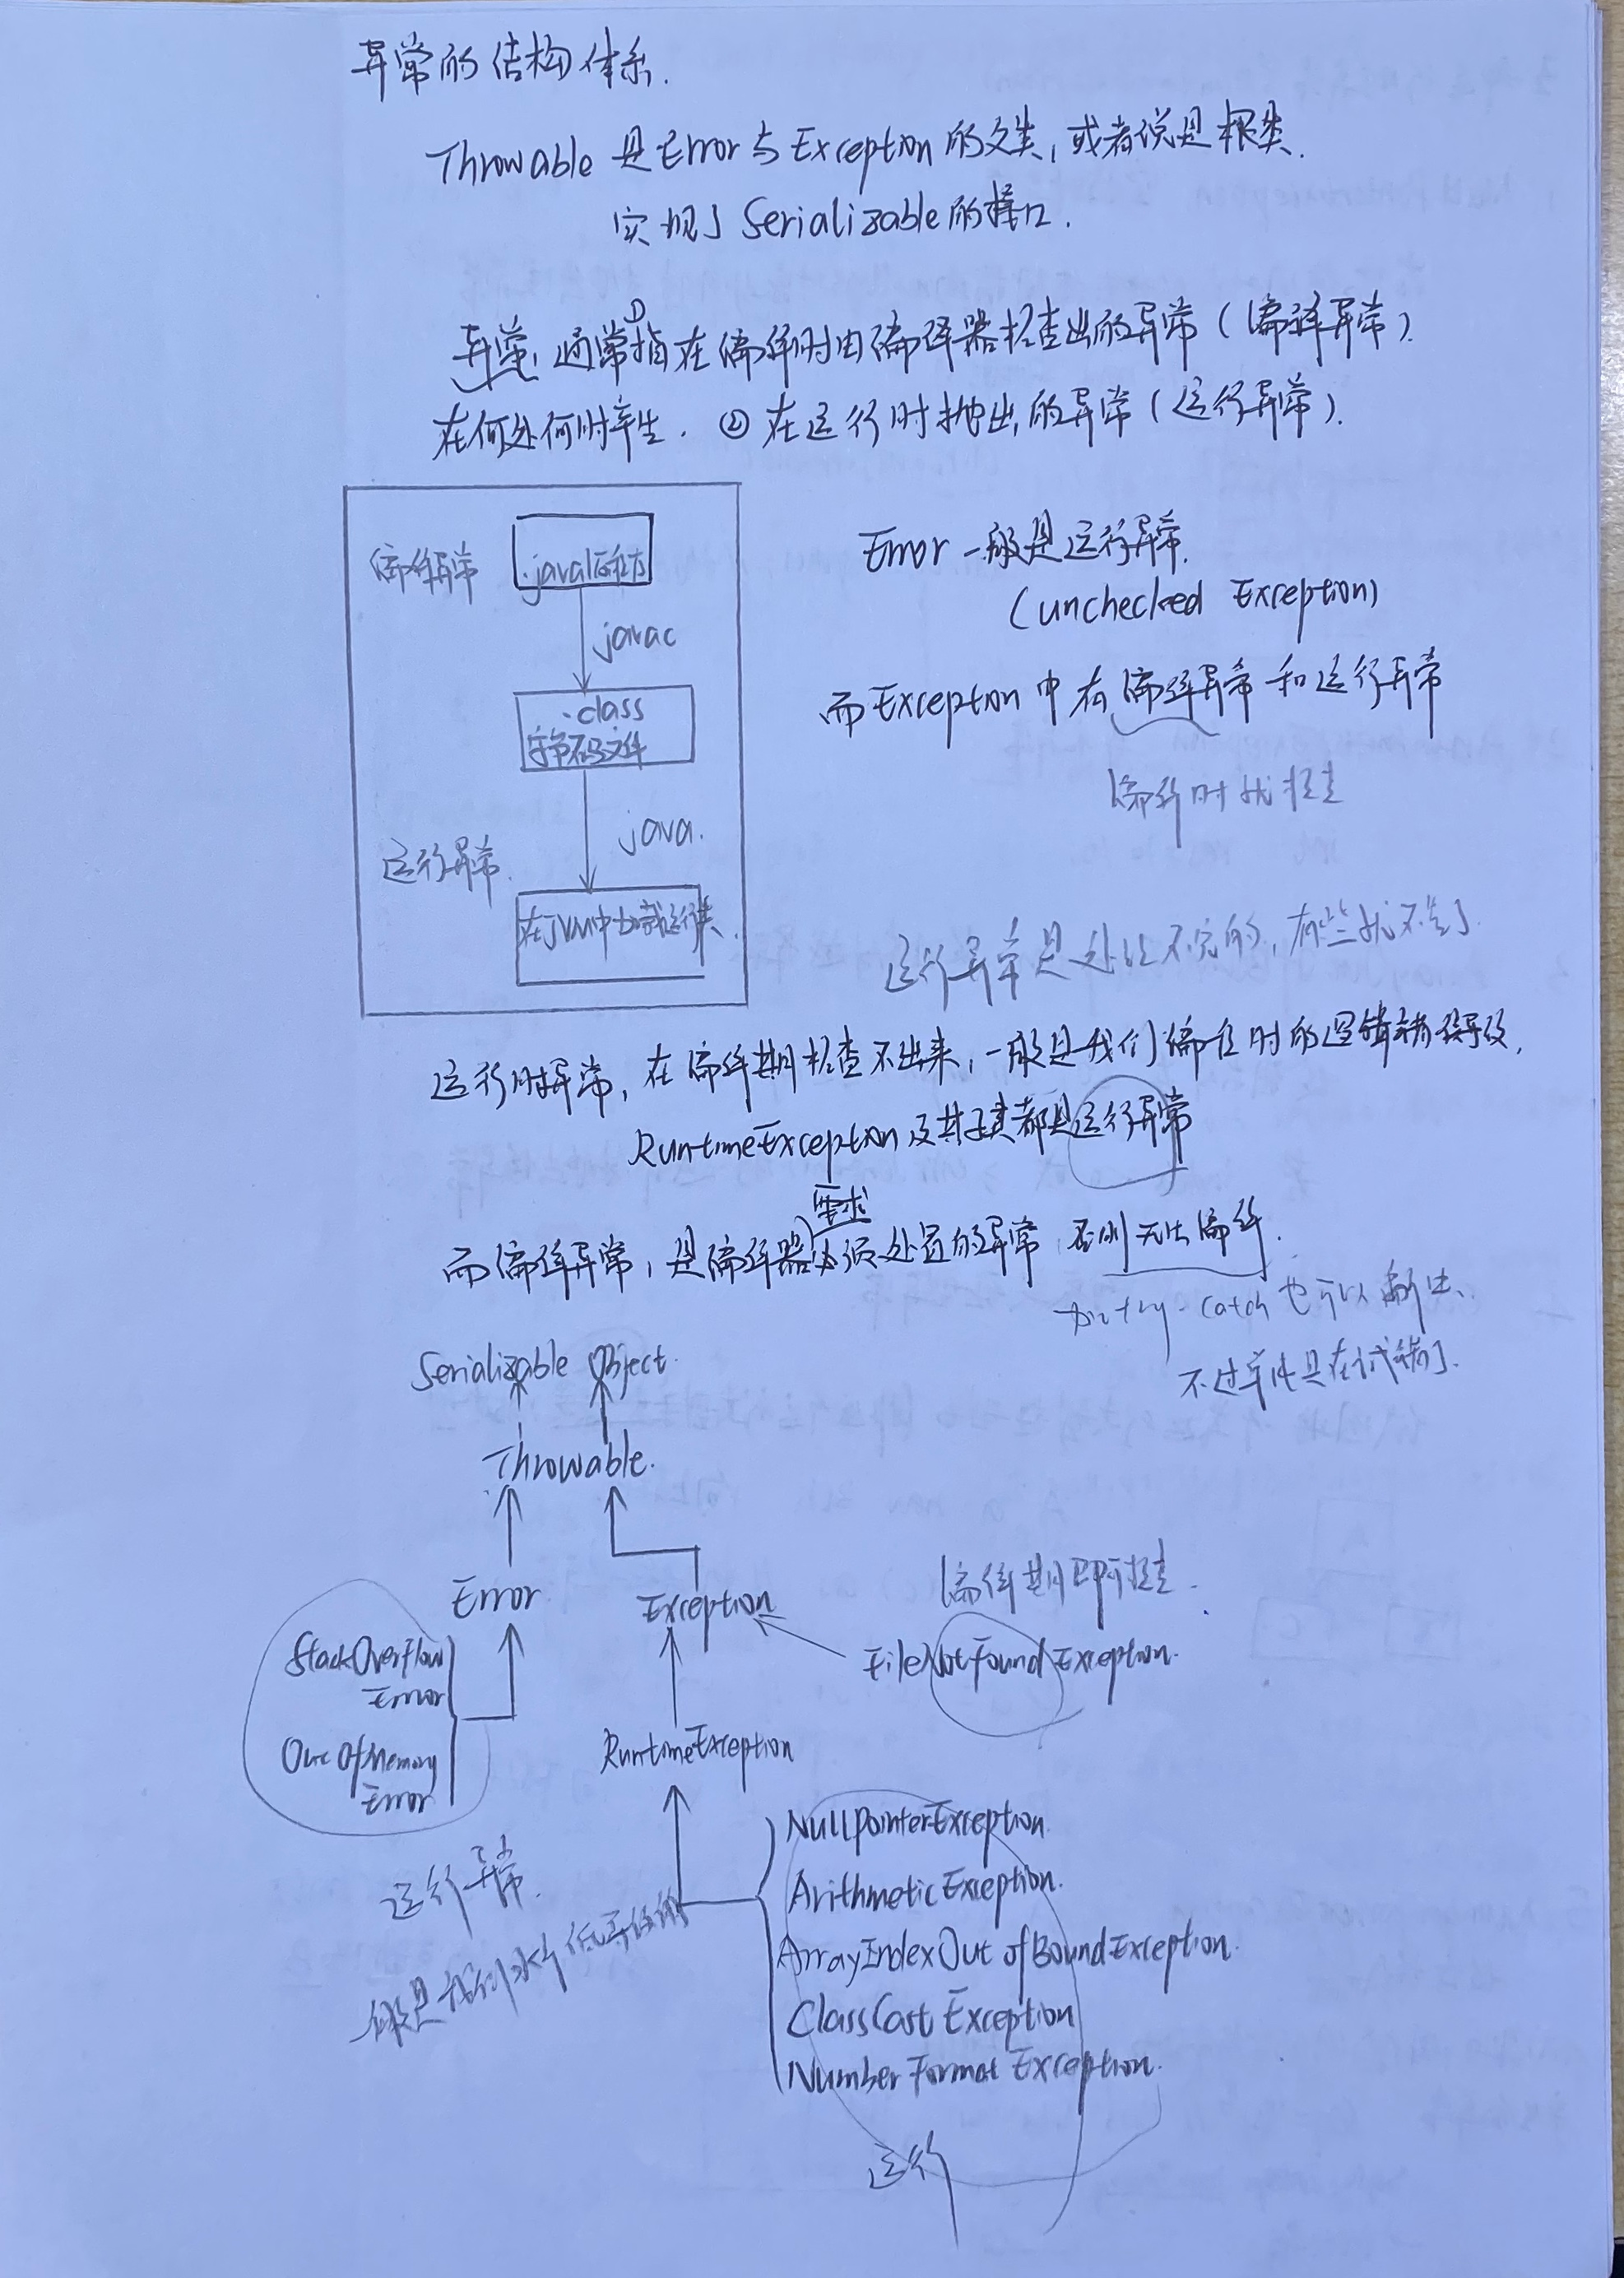 异常的结构体系.
Throwable 是Error与Exception的父类,或者说是根类.
实现了Serializable的接口.
异常,通常指①在编译时由编译器检查出的异常(编译异常).
在何处何时产生. ②在运行时抛出的异常(运行异常).
编译异常
.java
javac
.class
字节码文件
java.
运行异常.
在JVM中加载运行类.
Error一般是运行异常.
(unchecked Exception)
而Exception中有编译异常和运行异常
编译时就检查
运行异常是处理不完的,有些就不管了
运行时异常,在编译期检查不出来,一般是我们编程时的逻辑错误导致,
RuntimeException及其子类都是运行异常
而编译异常,是编译器要求必须处置的异常 否则无法编译.
try-catch也可以
Serializable Object.
Throwable.
Error
Exception
编译期即检查.
FileNotFoundException.
StackOverflow
Error
OutOfMemory
Error
RuntimeException
NullPointerException.
ArithmeticException.
ArrayIndexOutofBoundException.
ClassCastException
NumberFormatException.
运行异常.
一般是我们水平低导致的
运行